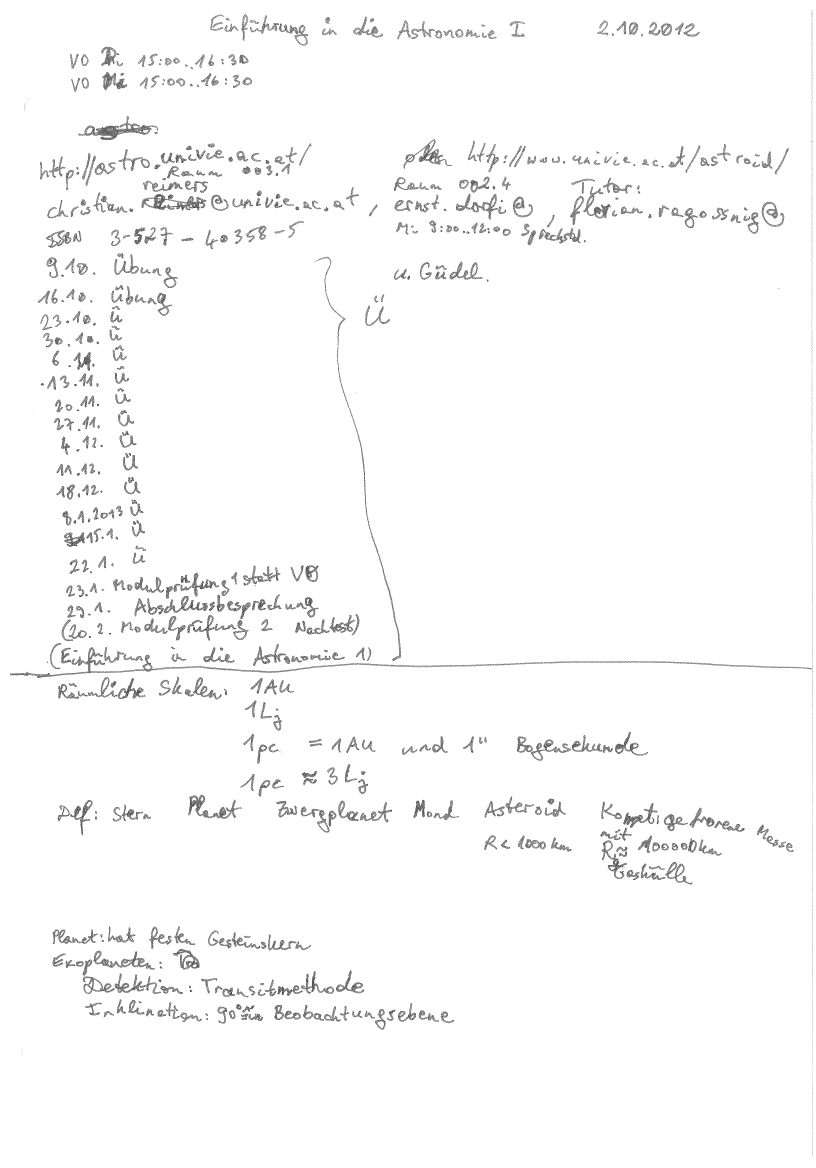 Einführung in die Astronomie I 2.10.2012
VO Di 15:00..16:30
VO Mi 15:00..16:30
http://astro.univie.ac.at/ oder http://www.univie.ac.at/astroid/
Raum 003.1 Raum 002.4 Tutor:
reimers
christian. @univie.ac.at, ernst.dorfi@, florian.ragossnig@
Mi 9:00..12:00 Sprechstd.
ISBN 3-527-40358-5
9.10. Übung u. Güdel.
16.10. Übung
Ü
23.10. Ü
30.10. Ü
6.11. Ü
13.11. Ü
20.11. Ü
27.11. Ü
4.12. Ü
11.12. Ü
18.12. Ü
8.1.2013 Ü
15.1. Ü
22.1. Ü
23.1. Modulprüfung 1 statt VO
29.1. Abschlussbesprechung
(20.2. Modulprüfung 2 Nachtest)
(Einführung in die Astronomie 1)
Räumliche Skalen: 1AU
1Lj
1pc = 1AU und 1" Bogensekunde
1pc ≈ 3Lj
Def: Stern Planet Zwergplanet Mond Asteroid Komet: gefrorene Masse
R < 1000km mit
R ≈ 100000km
Gashülle
Planet: hat festen Gesteinskern
Exoplaneten:
Detektion: Transitmethode
Inklination: 90° Beobachtungsebene